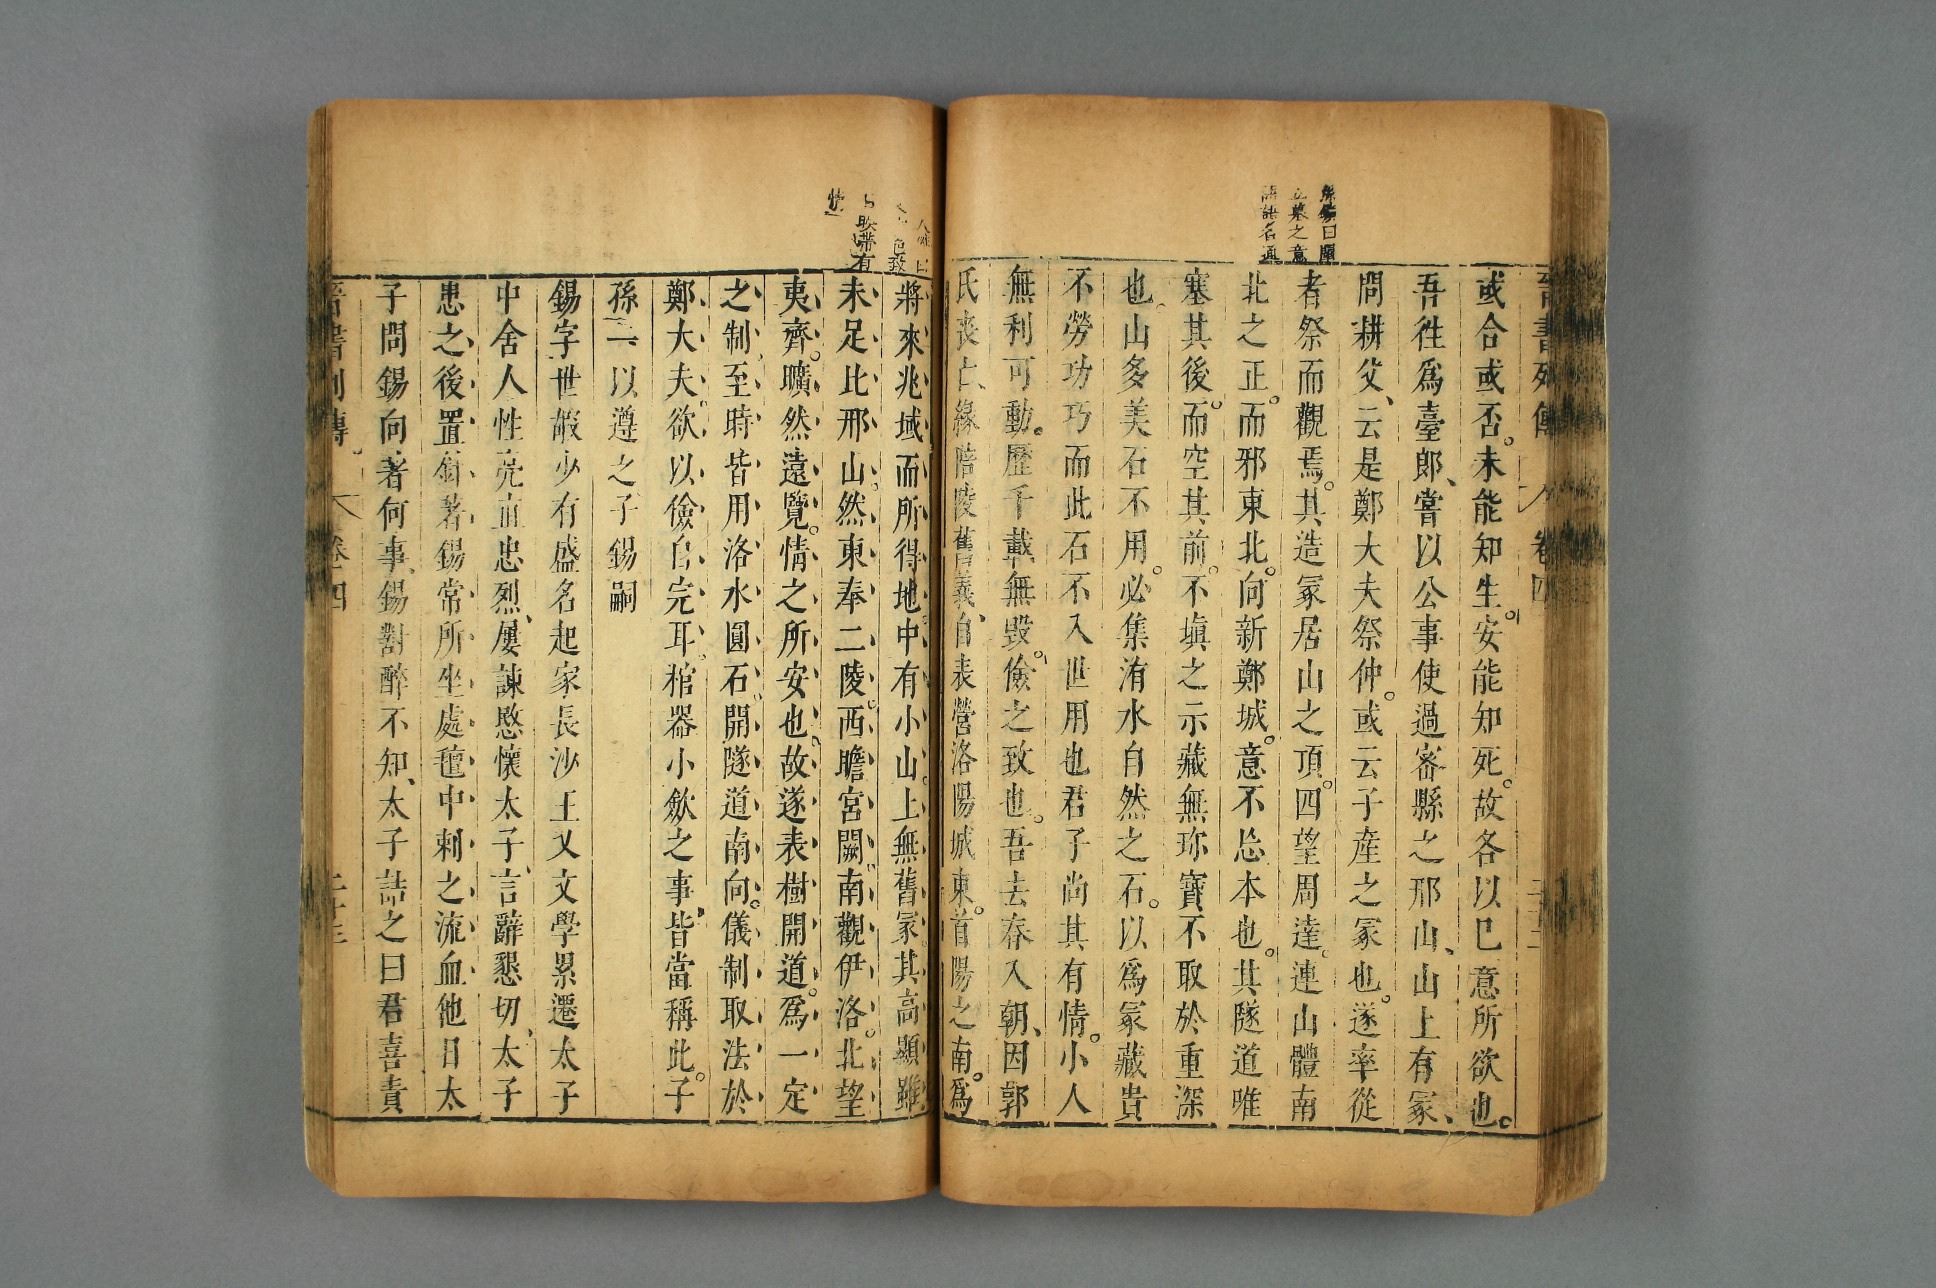 晉書列傳 卷四
孫鑛曰闡
立墓之意
語語名通
或合或否。未能知生。安能知死。故各以已意所欲也。
吾徃爲臺郎、嘗以公事使過密縣之邢山、山上有冢、
問耕父、云是鄭大夫祭仲。或云子產之冢也。遂率從
者祭而觀焉。其造冢居山之頂。四望周達。連山體南
北之正。而邪東北。向新鄭城。意不忘本也。其隧道唯
塞其後。而空其前。不塡之示藏無珍寶不取於重深
也。山多美石不用。必集洧水自然之石。以爲冢藏貴
不勞功巧而此石不入世用也君子尚其有情。小人
無利可動。歷千載無毀。儉之致也。吾去春入朝、因郭
氏喪亡、緣陪陵舊義、自表營洛陽城東。首陽之南。爲
將來兆域而所得地。中有小山。上無舊冢。其高顯雖
未足比邢山。然東奉二陵。西瞻宮闕。南觀伊洛。北望
夷齊。曠然遠覽。情之所安也。故遂表樹開道。爲一定
之制。至時皆用洛水圓石。開隧道南向。儀制取法於
鄭大夫。欲以儉自完耳。棺器小歛之事皆當稱此。子
孫一以遵之子錫嗣
錫字世嘏少有盛名起家長沙王乂文學累遷太子
中舍人性亮直忠烈、屢諫愍懷太子、言辭懇切、太子
患之後置針著錫常所坐處氊中刺之流血他日太
子問錫向著何事、錫對醉不知、太子詰之曰君喜責
晉書列傳 卷四 二十三